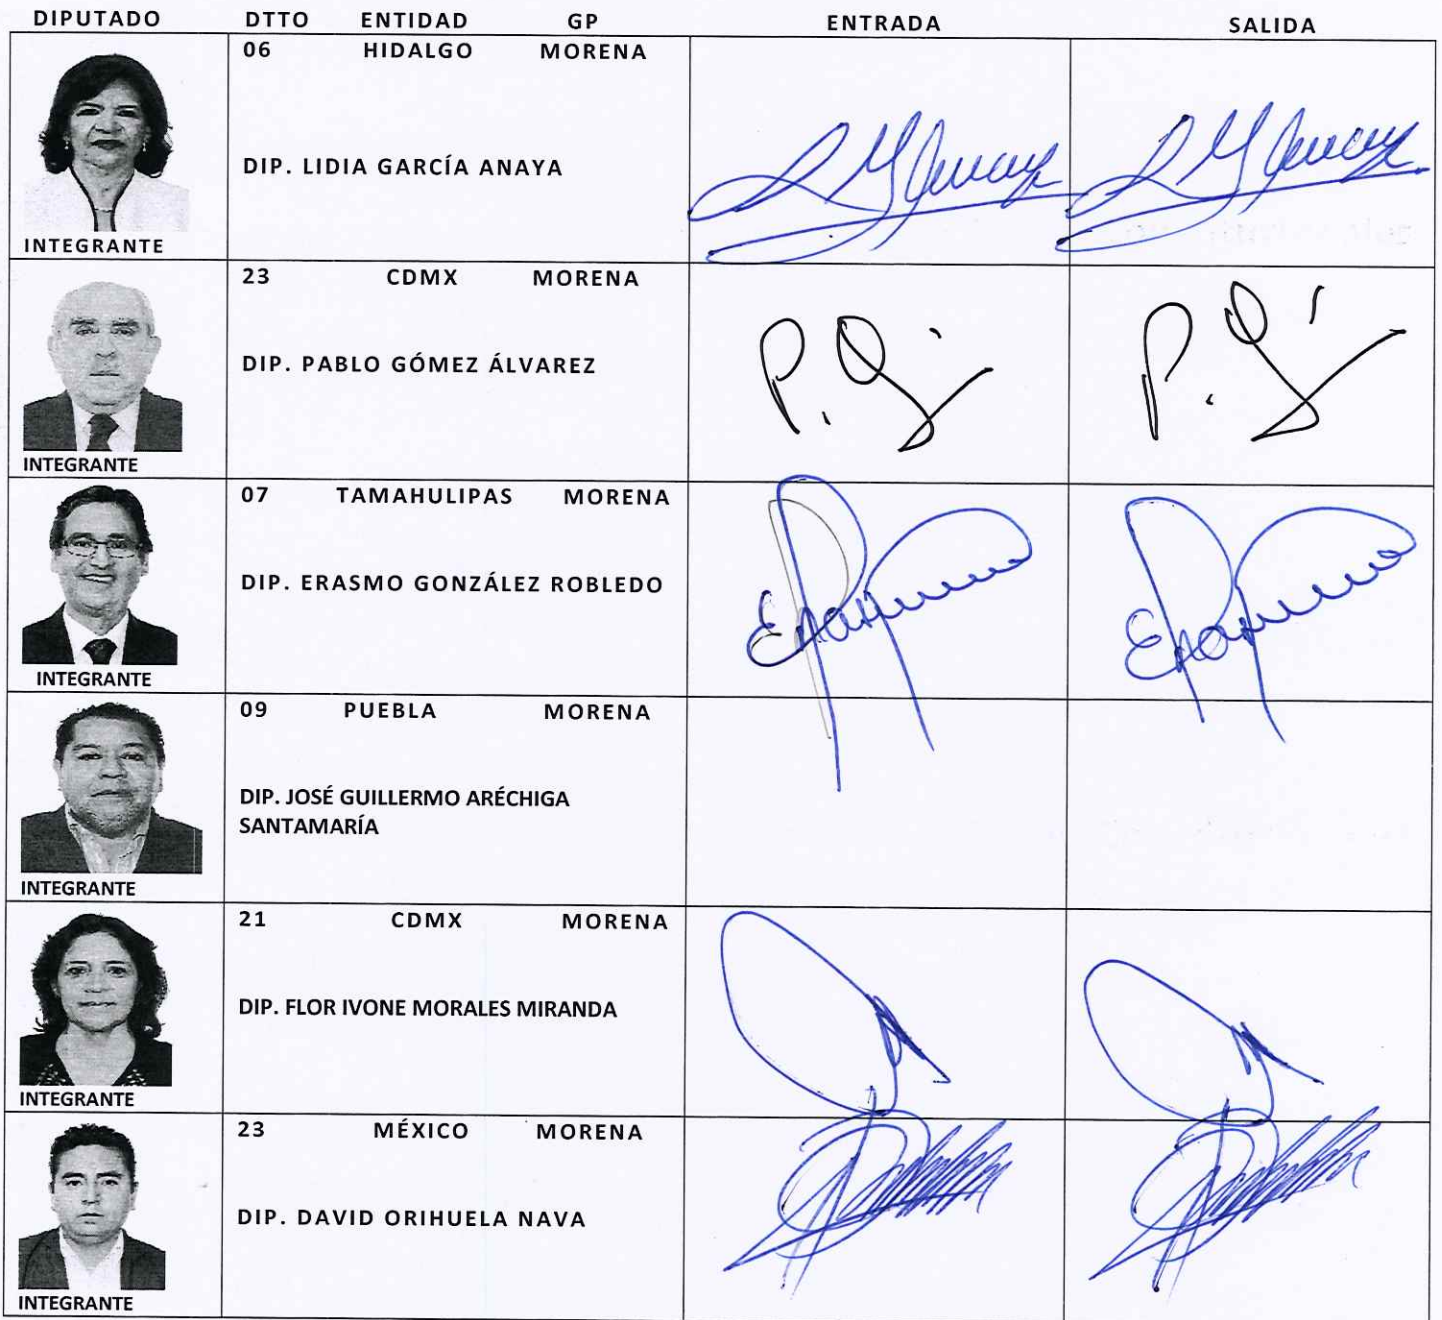 DIPUTADO DTTO ENTIDAD GP ENTRADA SALIDA
06 HIDALGO MORENA
DIP. LIDIA GARCÍA ANAYA
INTEGRANTE
23 CDMX MORENA
DIP. PABLO GÓMEZ ÁLVAREZ
INTEGRANTE
07 TAMAHULIPAS MORENA
DIP. ERASMO GONZÁLEZ ROBLEDO
INTEGRANTE
09 PUEBLA MORENA
DIP. JOSÉ GUILLERMO ARÉCHIGA
SANTAMARÍA
INTEGRANTE
21 CDMX MORENA
DIP. FLOR IVONE MORALES MIRANDA
INTEGRANTE
23 MÉXICO MORENA
DIP. DAVID ORIHUELA NAVA
INTEGRANTE